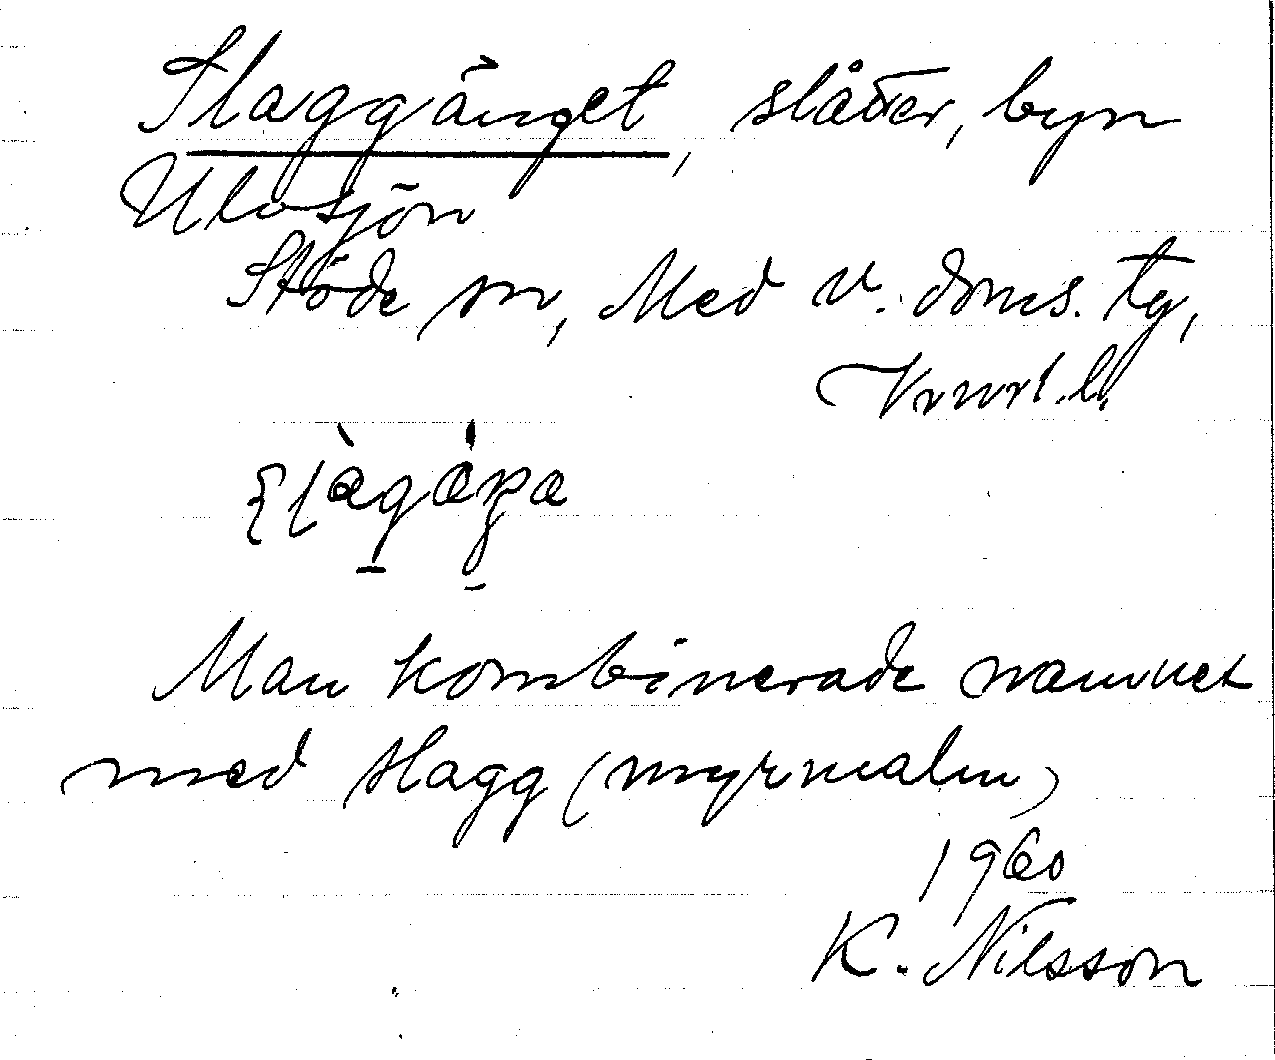 Slaggänget, slåtter, byn
Ulvsjön
Stöde sn, Med v. doms. tg,
Vnorl. l.
Man kombinerade namnet
med slagg (myrmalm)
1960
K. Nilsson